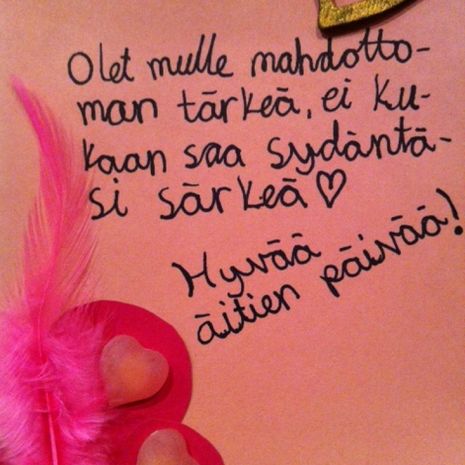 Olet mulle mahdotto-
man tärkeä, ei ku-
kaan saa sydäntä-
si särkeä ♡
Hyvää
äitien päivää!